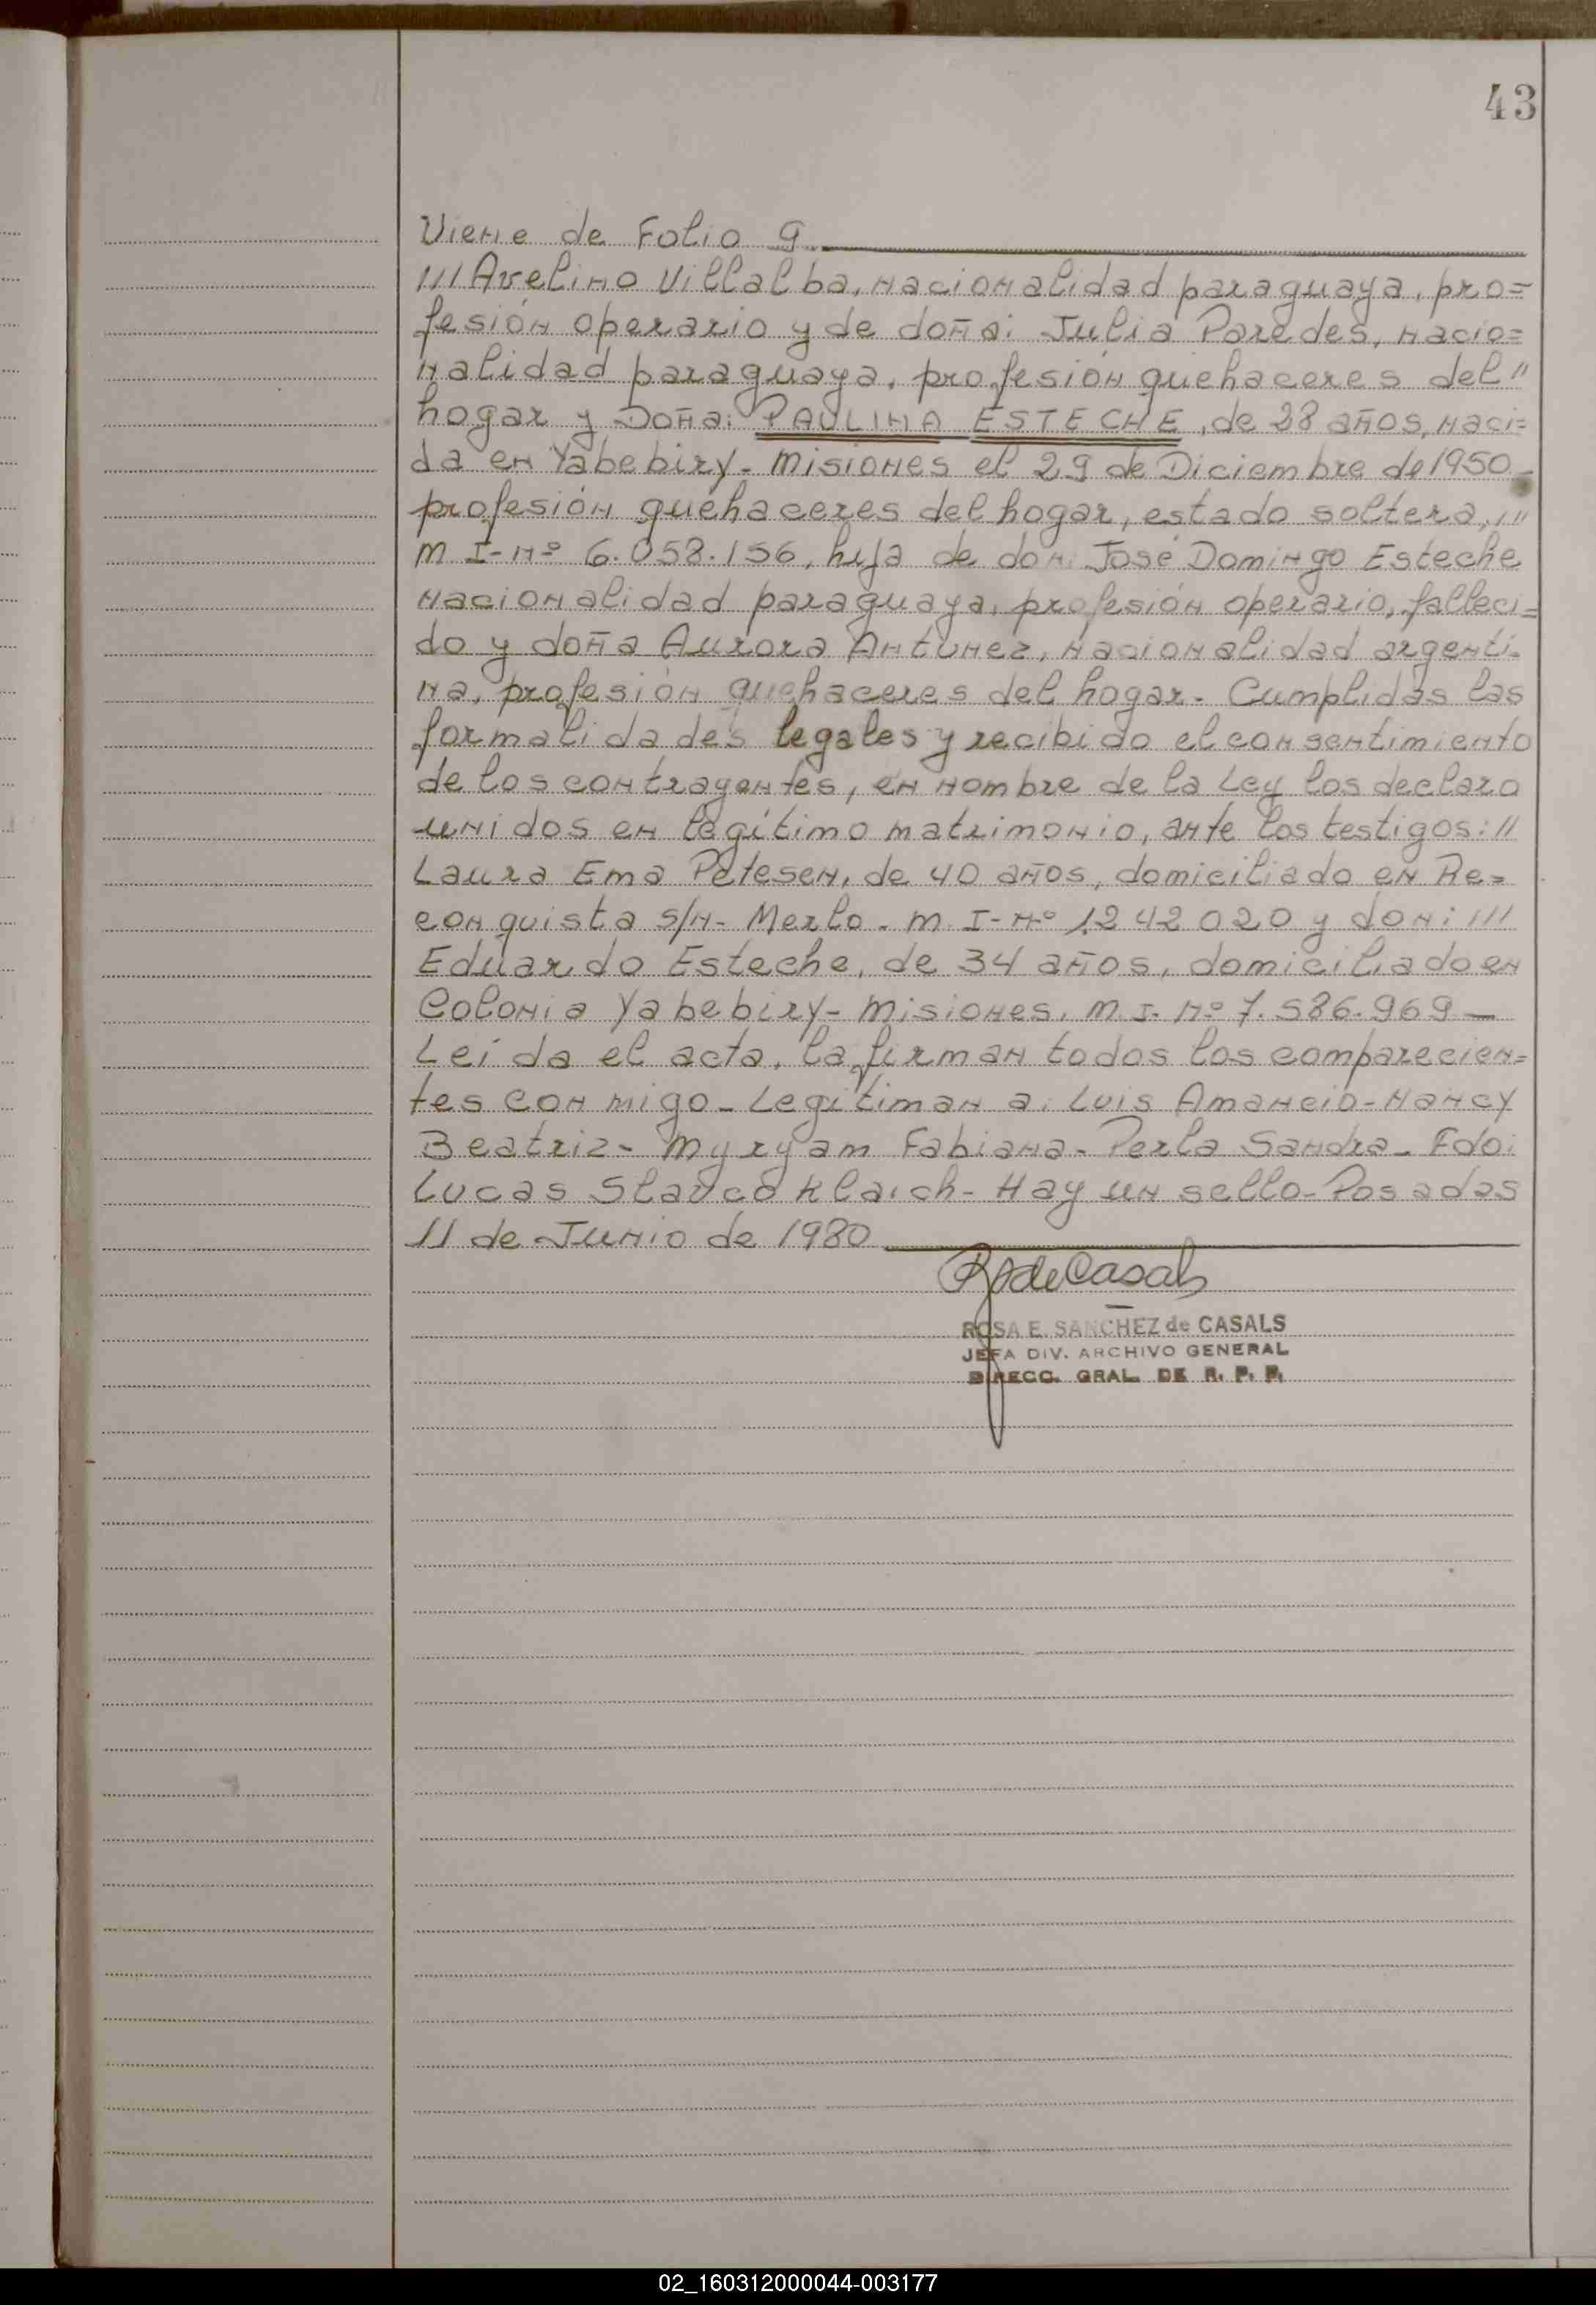 43
Viene de Folio 9
///Avelino Villalba, nacionalidad paraguaya, pro=
fesión operario y de doña: Julia Paredes, nacio=
nalidad paraguaya, profesión quehaceres del"
hogar y Doña: PAULINA ESTECHE, de 28 años, naci=
da en Yabebiry - Misiones el 29 de Diciembre de 1950 -
profesión quehaceres del hogar, estado soltera, ///
M I - Nº 6.058.156, hija de don: José Domingo Esteche
nacionalidad paraguaya, profesión operario, falleci=
do y doña Aurora Antunez, nacionalidad argenti=
na, profesión quehaceres del hogar - Cumplidas las
formalidades legales y recibido el consentimiento
de los contrayentes, en nombre de la Ley los declaro
unidos en legítimo matrimonio, ante los testigos: //
Laura Ema Petesen, de 40 años, domiciliado en Re=
conquista s/n - Merlo - M. I - Nº 1242020 y don: ///
Eduardo Esteche, de 34 años, domiciliado en
Colonia Yabebiry - Misiones, M. I. Nº 7.586.969 —
Leída el acta, la firman todos los comparecien=
tes conmigo - Legitiman a: Luis Amancio - Nancy
Beatriz - Myryam Fabiana - Perla Sandra - Fdo:
Lucas Slavco Klaich - Hay un sello - Posadas
11 de Junio de 1980
RSdeCasals
ROSA E. SANCHEZ de CASALS
JEFA DIV. ARCHIVO GENERAL
DIRECC. GRAL. DE R. P. P.
02_160312000044-003177